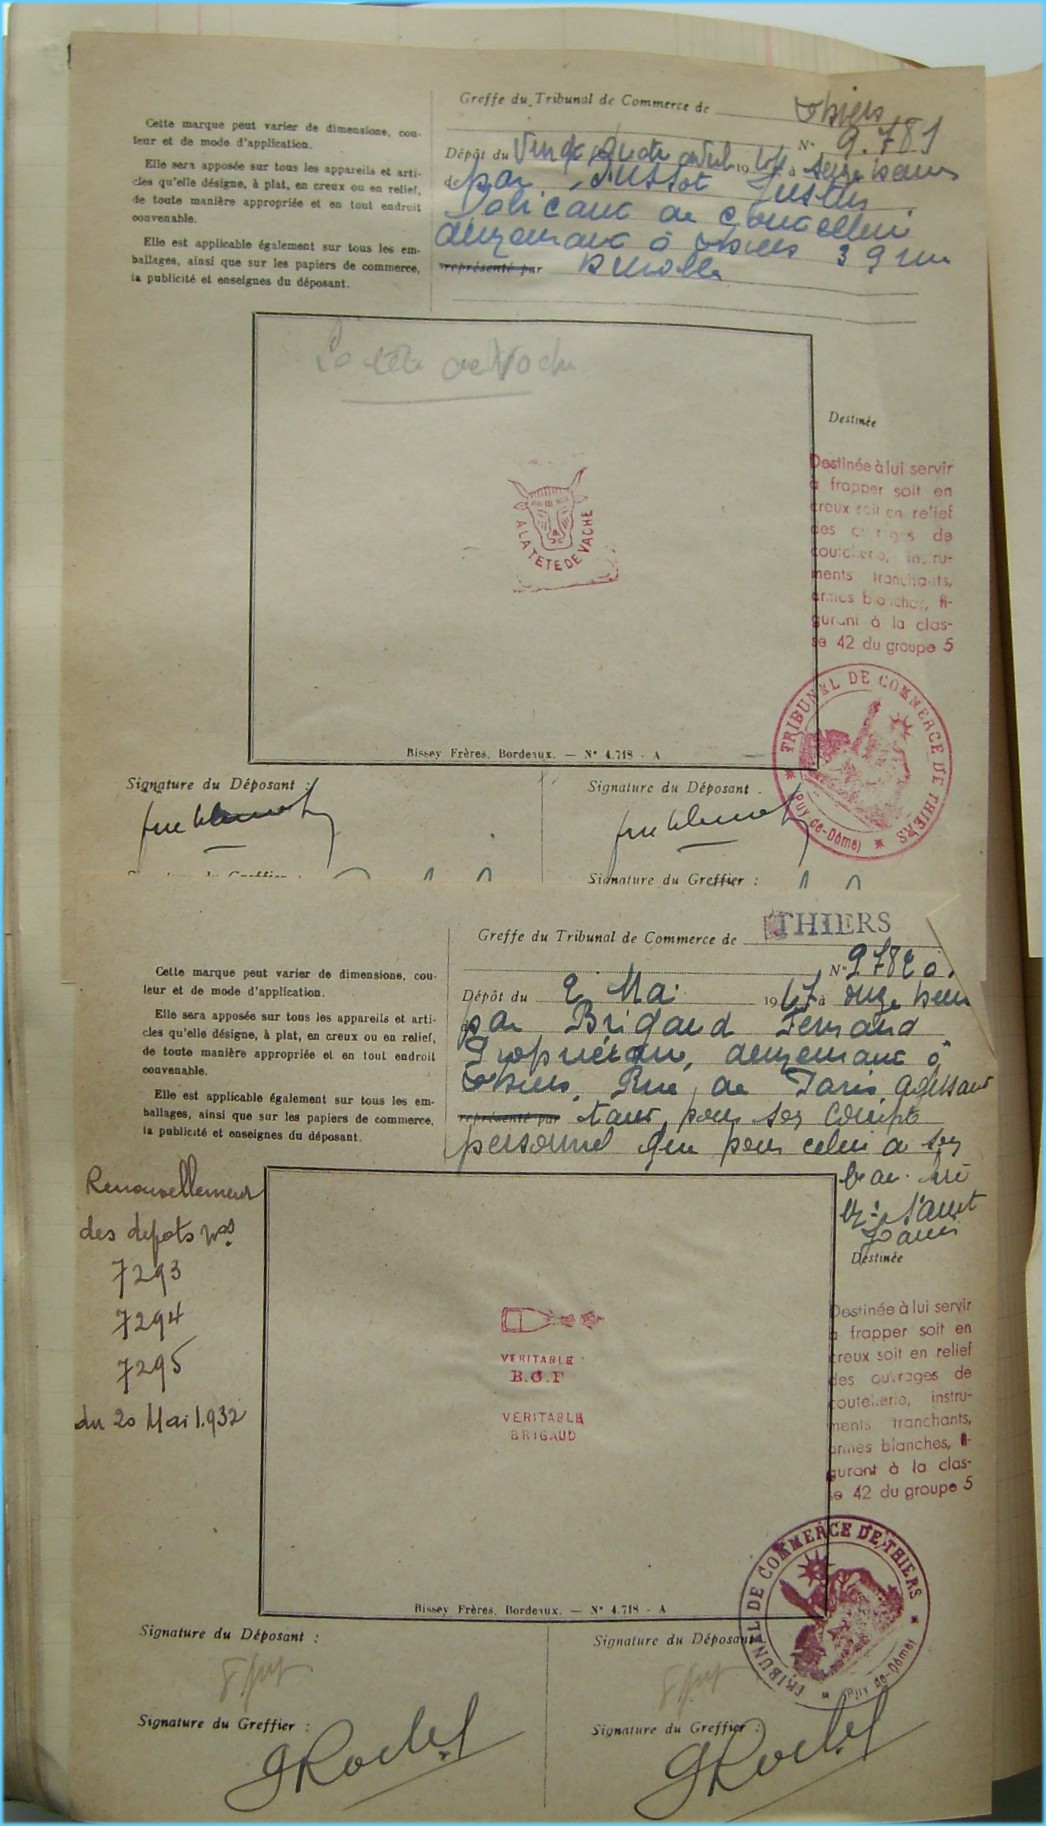 Greffe du Tribunal de Commerce de Thiers
N° 9.781
Cette marque peut varier de dimensions, cou-
leur et de mode d'application.
Elle sera apposée sur tous les appareils et arti-
cles qu'elle désigne, à plat, en creux ou en relief,
de toute manière appropriée et en tout endroit
convenable.
Elle est applicable également sur tous les em-
ballages, ainsi que sur les papiers de commerce,
la publicité et enseignes du déposant.
Dépôt du Vingt quatre avril 19 à seize heures
par Justin
Fabricant de coutellerie
demeurant à Thiers 39 rue
représenté par
La tête de Vache
A LA TETE DE VACHE
Destinée
Destinée à lui servir
à frapper soit en
creux soit en relief
des ouvrages de
coutellerie, instru-
ments tranchants,
armes blanches, fi-
gurant à la clas-
se 42 du groupe 5
TRIBUNAL DE COMMERCE DE THIERS
Puy-de-Dôme
Bissey Frères, Bordeaux. — N° 4.718 - A
Signature du Déposant :
Signature du Déposant
Signature du Greffier :
Signature du Greffier :
Greffe du Tribunal de Commerce de THIERS
N° 9782
Cette marque peut varier de dimensions, cou-
leur et de mode d'application.
Elle sera apposée sur tous les appareils et arti-
cles qu'elle désigne, à plat, en creux ou en relief,
de toute manière appropriée et en tout endroit
convenable.
Elle est applicable également sur tous les em-
ballages, ainsi que sur les papiers de commerce,
la publicité et enseignes du déposant.
Dépôt du 2 Mai 1947 à onze heures
par Brigaud Fernand
Propriétaire, demeurant à
Thiers, Rue de Paris, agissant
représenté par tant pour son compte
personnel que pour celui de son
Renouvellement
des depots nos
7293
7294
7295
du 20 Mai 1.932
VERITABLE
B.G.F
VERITABLE
BRIGAUD
Destinée
Destinée à lui servir
à frapper soit en
creux soit en relief
des ouvrages de
coutellerie, instru-
ments tranchants,
armes blanches, fi-
gurant à la clas-
se 42 du groupe 5
TRIBUNAL DE COMMERCE DE THIERS
Puy-de-Dôme
Bissey Frères, Bordeaux. — N° 4.718 - A
Signature du Déposant :
Signature du Déposant
Signature du Greffier :
Signature du Greffier :